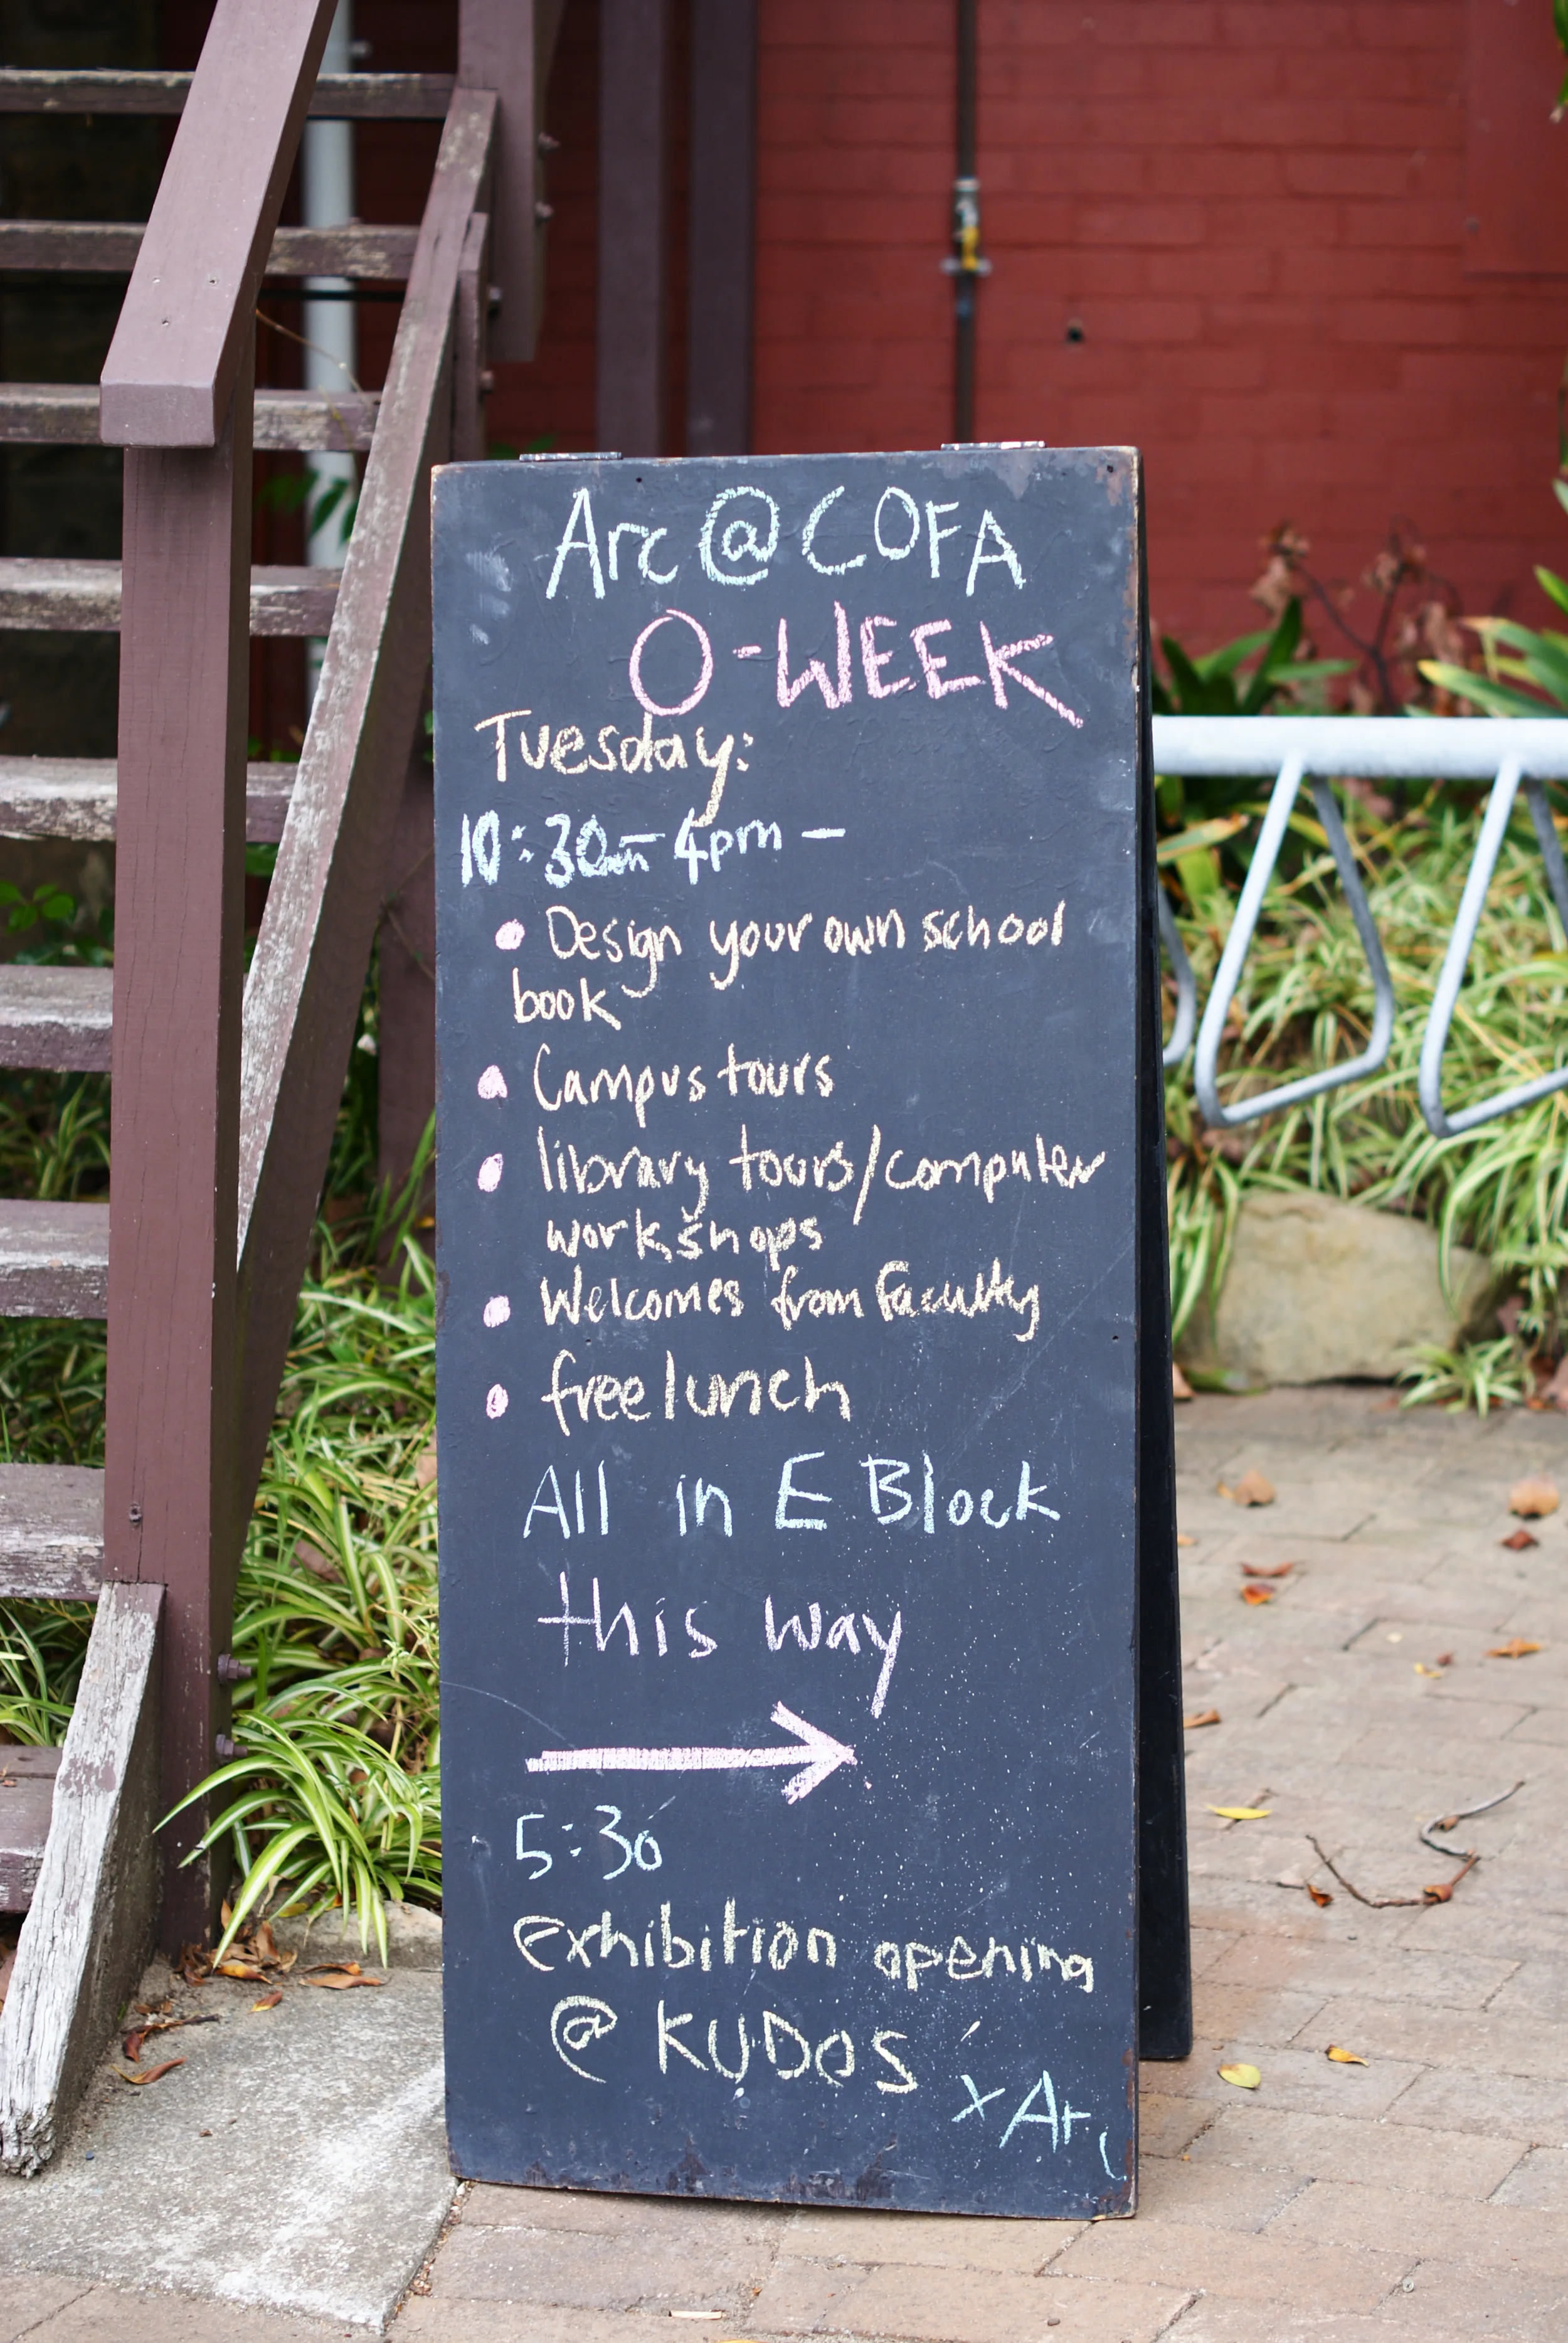 Arc @ COFA
O-WEEK
Tuesday:
10:30am-4pm -
• Design your own school
book
• Campus tours
• library tours/computer
workshops
• Welcomes from faculty
• free lunch
All in E Block
this way
→
5:30
exhibition opening
@ KUDOS
x Arc